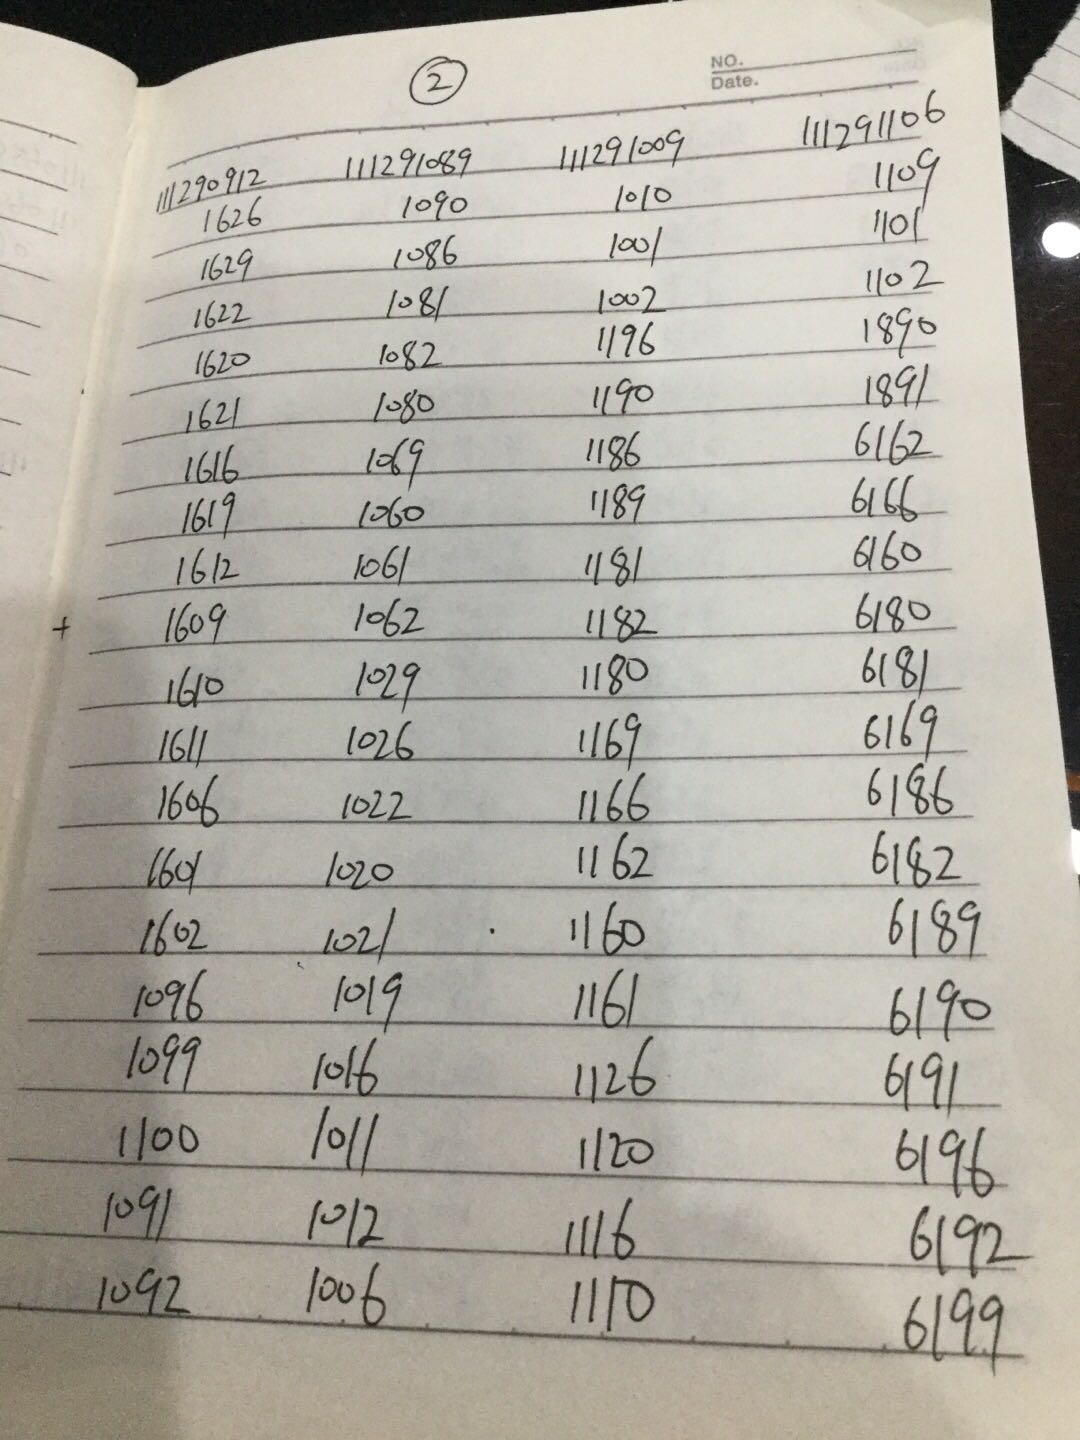 ②
NO.
Date.
111290912 111291089 111291009 111291106
1626 1090 1010 1109
1629 1086 1001 1101
1622 1081 1002 1102
1620 1082 1196 1890
1621 1080 1190 1891
1616 1069 1186 6162
1619 1060 1189 6166
1612 1061 1181 6160
+ 1609 1062 1182 6180
1610 1029 1180 6181
1611 1026 1169 6169
1606 1022 1166 6186
1601 1020 1162 6182
1602 1021 1160 6189
1096 1019 1161 6190
1099 1016 1126 6191
1100 1011 1120 6196
1091 1012 1116 6192
1092 1006 1110 6199